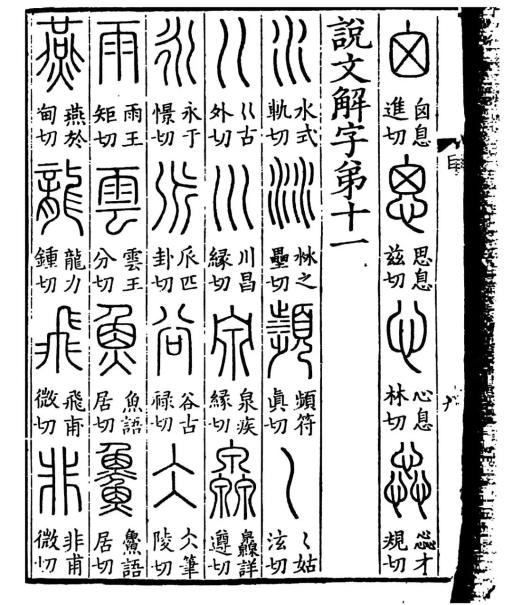 囟 囟息進切 思 思息茲切 心 心息林切 惢 惢才規切
說文解字弟十一
水 水式軌切 沝 沝之壘切 頻 頻符眞切 𡿨 𡿨姑泫切
巜 巜古外切 川 川昌縁切 泉 泉疾縁切 灥 灥詳遵切
永 永于憬切 𠂢 𠂢匹卦切 谷 谷古祿切 仌 仌筆陵切
雨 雨王矩切 雲 雲王分切 魚 魚語居切 䲆 䲆語居切
燕 燕於甸切 龍 龍力鍾切 飛 飛甫微切 非 非甫微切